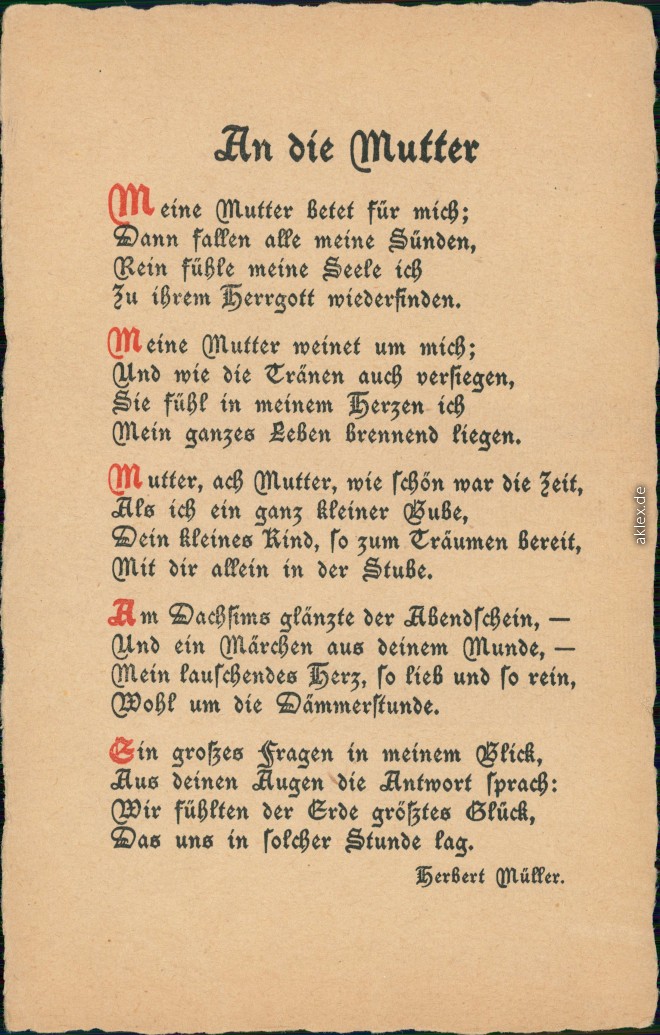 An die Mutter
Meine Mutter betet für mich;
Dann fallen alle meine Sünden,
Rein fühle meine Seele ich
Zu ihrem Herrgott wiederfinden.
Meine Mutter weinet um mich;
Und wie die Tränen auch versiegen,
Sie fühl in meinem Herzen ich
Mein ganzes Leben brennend liegen.
Mutter, ach Mutter, wie schön war die Zeit,
Als ich ein ganz kleiner Bube,
Dein kleines Kind, so zum Träumen bereit,
Mit dir allein in der Stube.
Am Dachsims glänzte der Abendschein, —
Und ein Märchen aus deinem Munde, —
Mein lauschendes Herz, so lieb und so rein,
Wohl um die Dämmerstunde.
Ein großes Fragen in meinem Blick,
Aus deinen Augen die Antwort sprach:
Wir fühlten der Erde größtes Glück,
Das uns in solcher Stunde lag.
Herbert Müller.
aklex.de